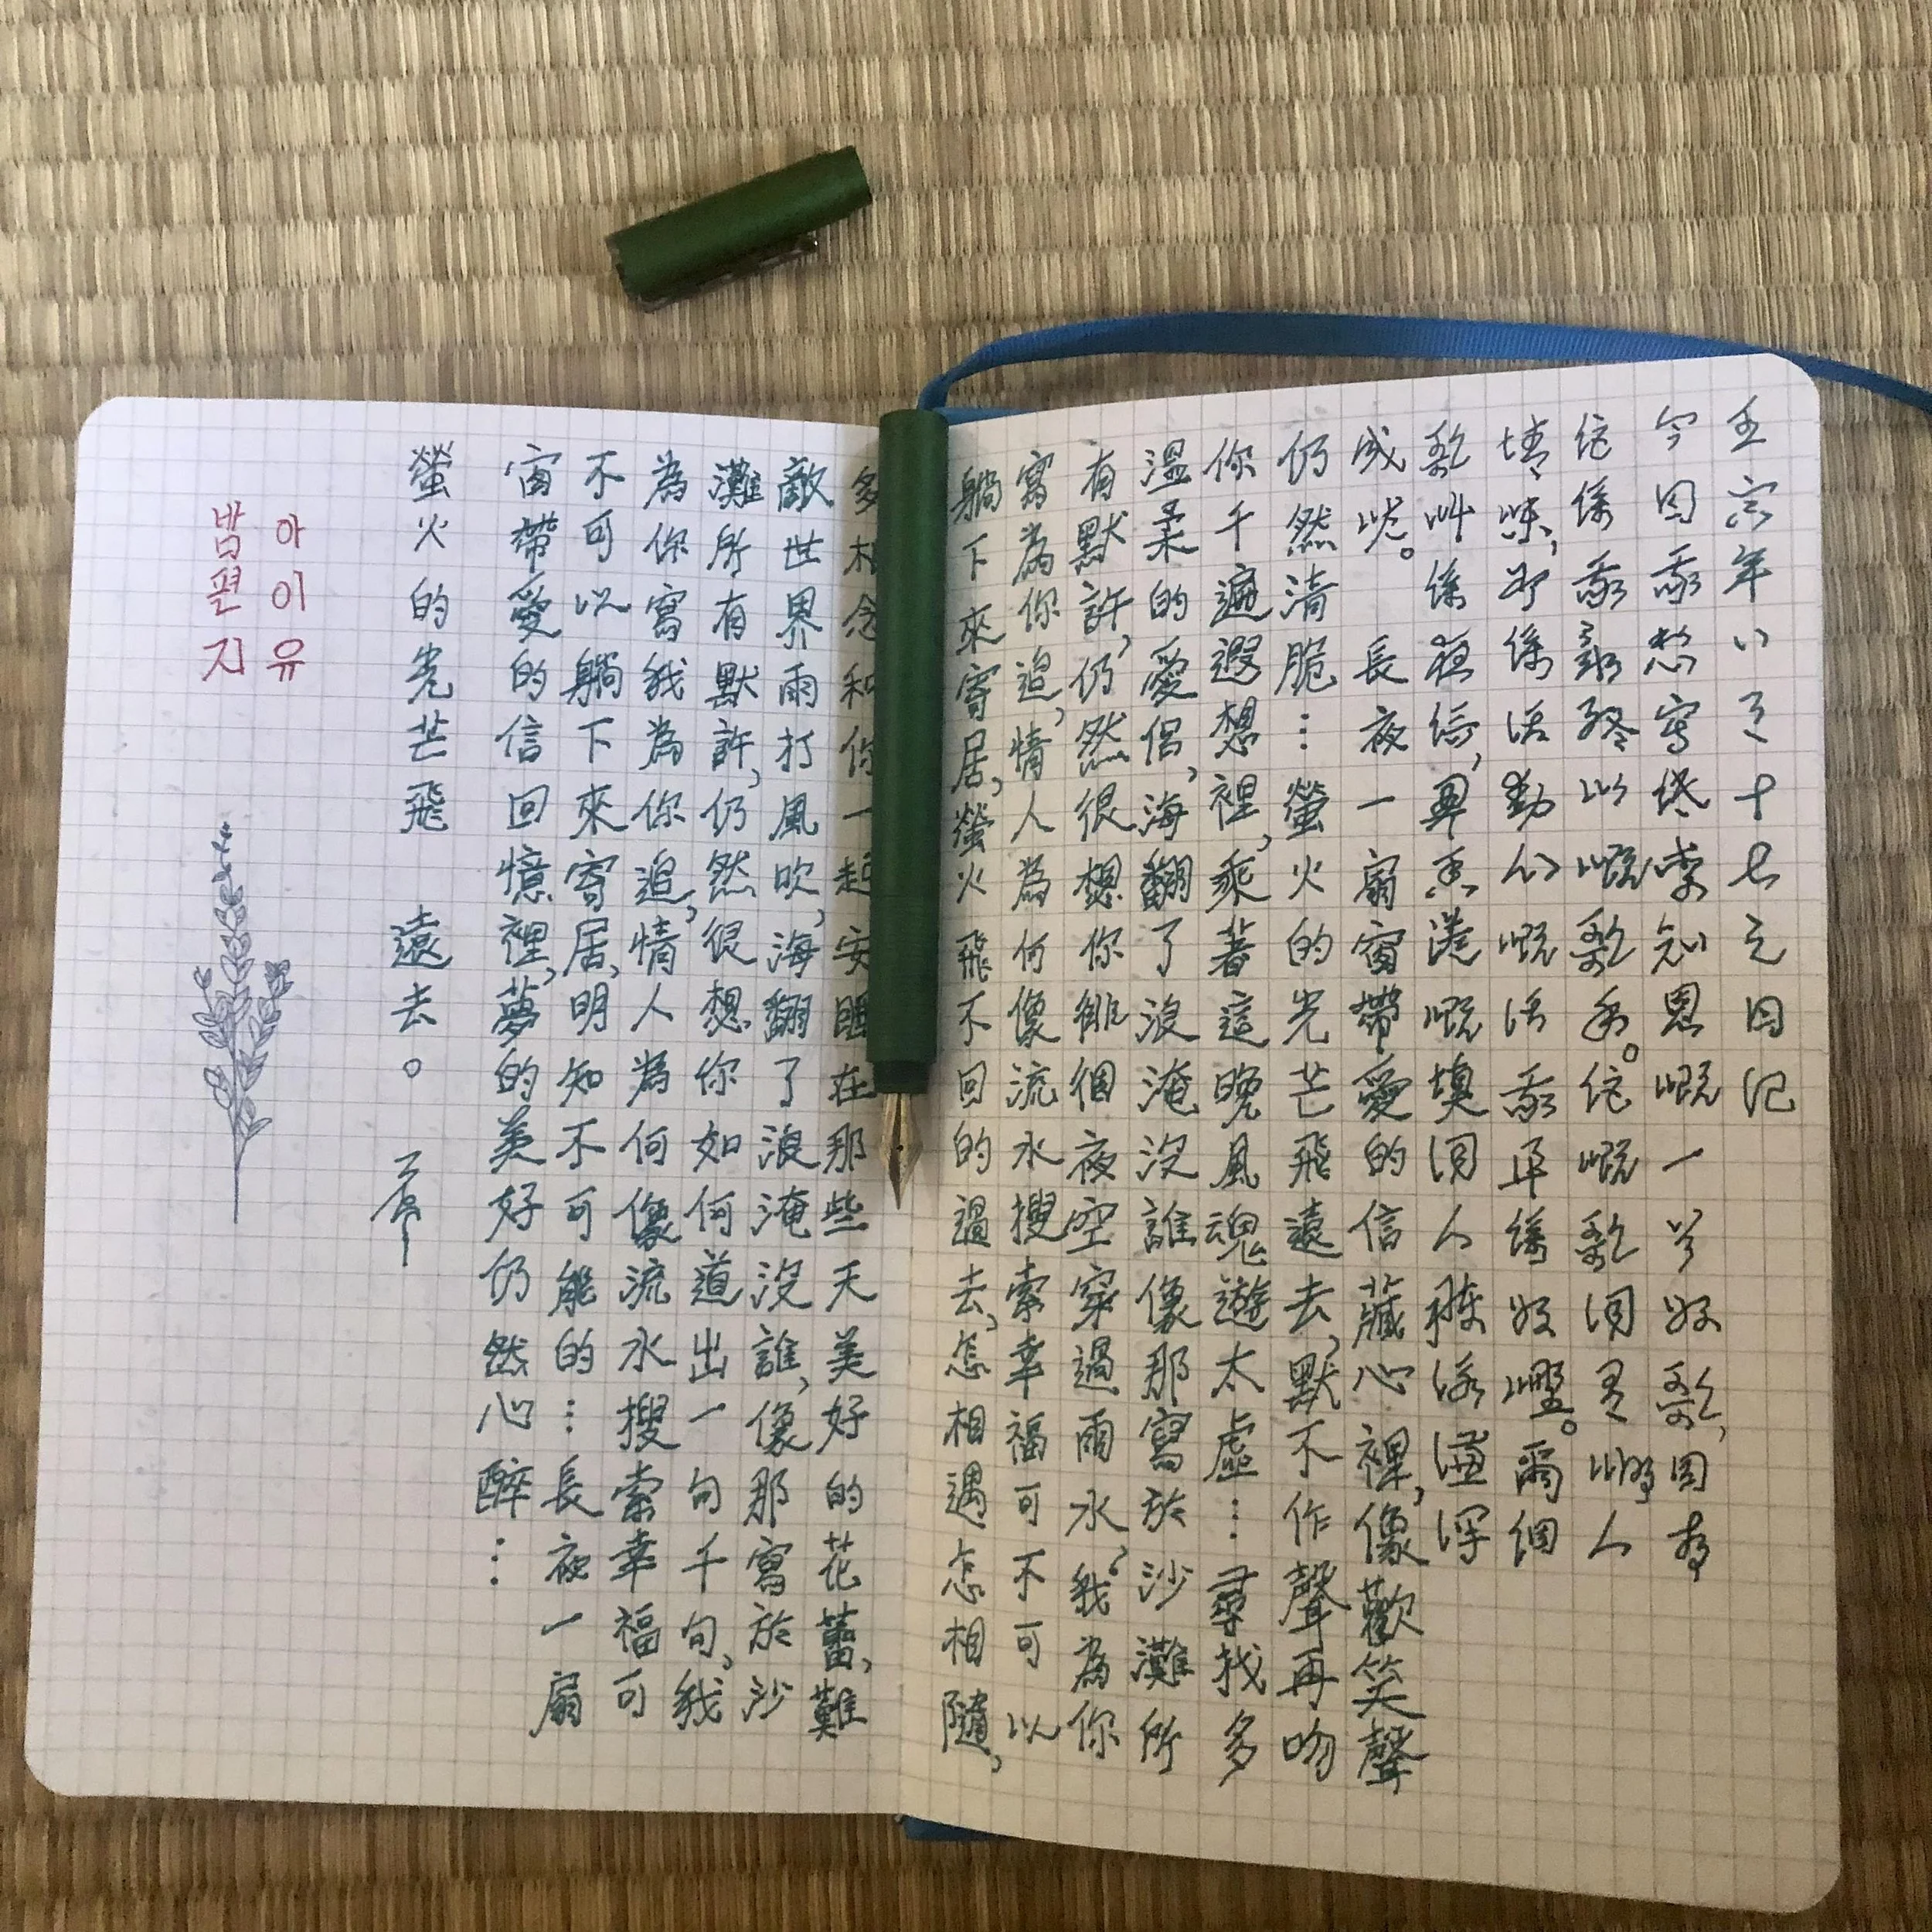 年十七之日记
今日想寫知恩嘅一好歌,因為
佢係我嘅歌手。佢嘅歌詞人
係話嘅話係好個
歌叫係夜信,港嘅填詞人
長夜一扇窗帶愛的信藏心裡,像歡笑聲
仍然清脆…螢火的光芒飛遠去,默不作聲再吻
你千遍遐想裡,乘著這晚風魂遊太虛…尋找多
溫柔的愛侶,海翻了浪淹沒誰像那寫於沙灘所
有默許,仍然很想你徘徊夜空穿過雨水,我為你
寫為你追,情人為何像流水搜索幸福可不可以
躺下來寄居,螢火飛不回的過去,怎相遇怎相隨,
多想念和你一起安睡在那些天美好的花蕾,難
敵世界雨打風吹,海翻了浪淹沒誰,像那寫於沙
灘所有默許,仍然很想你如何道出一句千句,我
為你寫我為你追,情人為何像流水搜索幸福可
不可以躺下來寄居,明知不可能的…長夜一扇
窗帶愛的信回憶裡,夢的美好仍然心醉…
螢火的光芒飛遠去。
아이유
밤편지